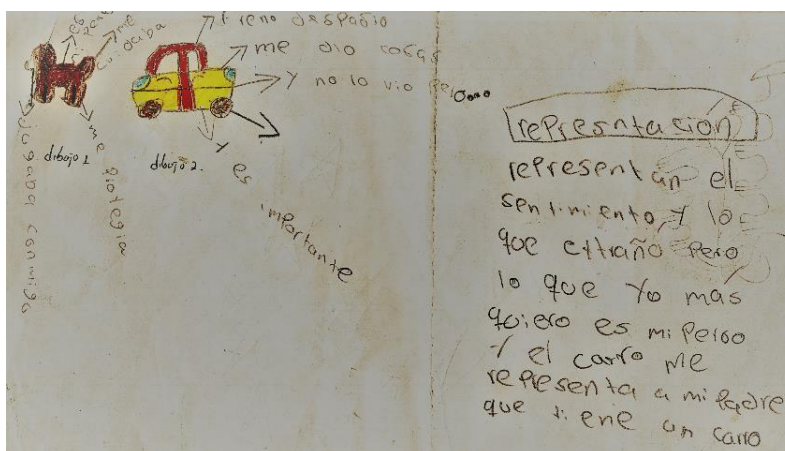 me
cuidaba
jugaba conmigo
me protegia
dibujo 1
freno despasio
me dio cosas
Y no lo vio
Y es importante
dibujo 2.
represntacion
representan el
sentimiento, Y lo
que extraño pero
lo que Yo mas
quiero es mi perso
Y el carro me
representa a mi padre
que tiene un carro